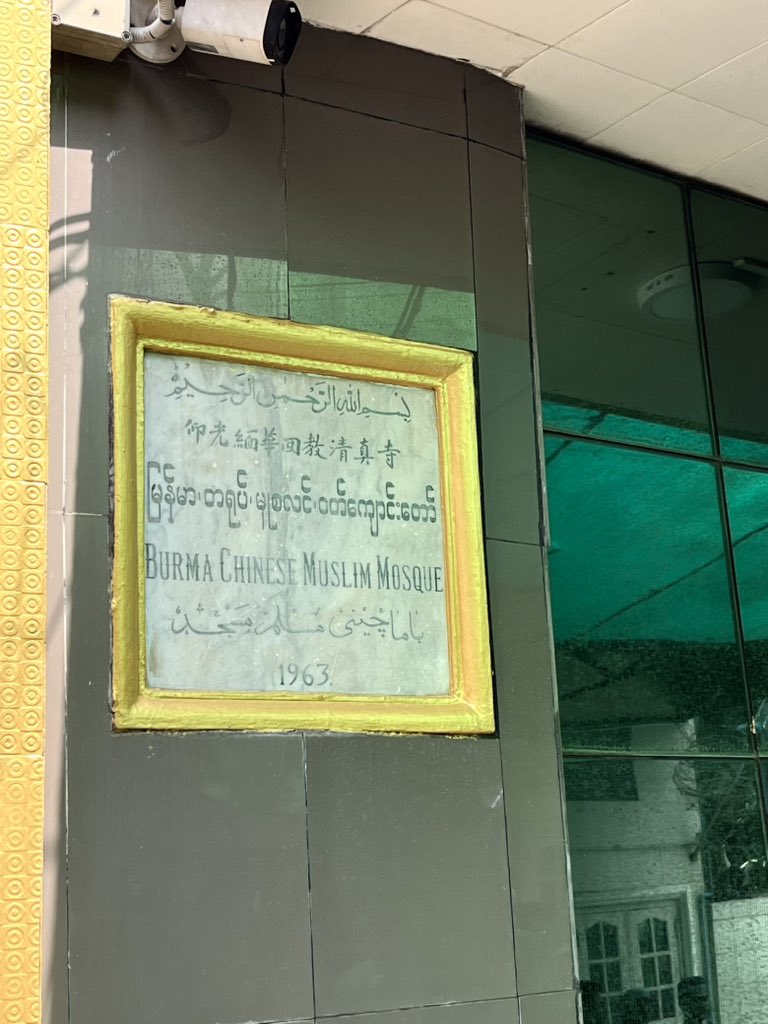 بِسْمِ اللهِ الرَّحْمٰنِ الرَّحِيْمِ
仰光緬華回教清真寺
မြန်မာ၊တရုပ်၊မူစလင်၊ဝတ်ကျောင်းတော်
BURMA CHINESE MUSLIM MOSQUE
باما چینی مسلم مسجد
1963.